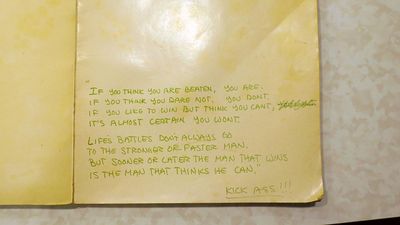 IF YOU THINK YOU ARE BEATEN, YOU ARE.
IF YOU THINK YOU DARE NOT, YOU DONT.
IF YOU LIKE TO WIN BUT THINK YOU CANT,
IT'S ALMOST CERTAIN YOU WONT.
LIFE'S BATTLES DON'T ALWAYS GO
TO THE STRONGER OR FASTER MAN.
BUT SOONER OR LATER THE MAN THAT WINS
IS THE MAN THAT THINKS HE CAN."
KICK ASS!!!